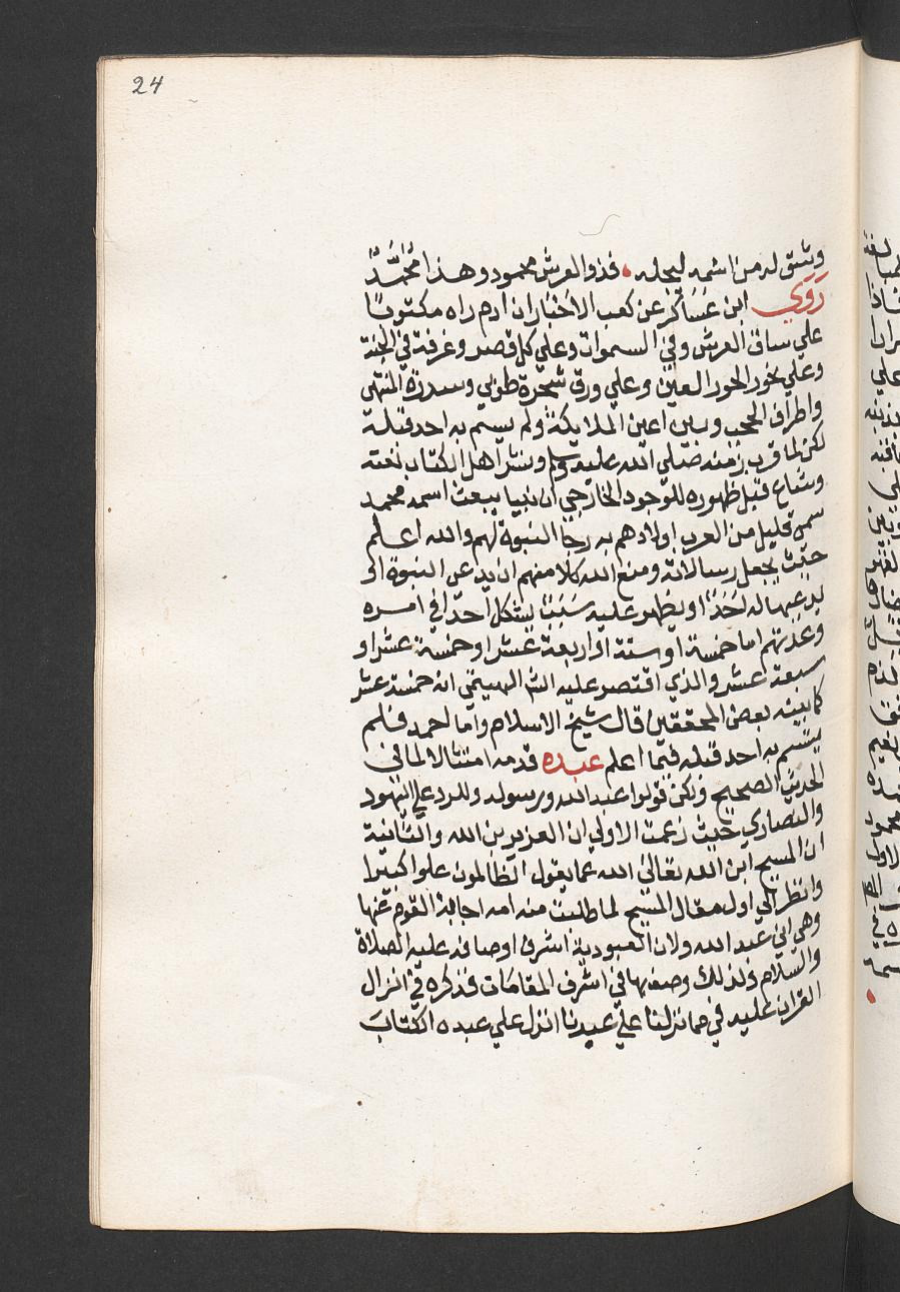 24
وشق له من اسمه ليجله • فذو العرش محمود وهذا محمدٌ
رَوَي ابن عساكر عن كعب الاخبار ان ادم راه مكتوبا
علي ساق العرش وفي السموات وعلي كل قصر وغرفة في الجنة
وعلي نحور الحور العين وعلي ورق شجرة طوبي وسدرة المنتهى
واطراف الحجب وبين اعين الملايكة ولم يسم به احد قبله
لكن لما قرب زمنه صلي الله عليه وسلم ونشر اهل الكتاب نعته
وشاع قبل ظهوره للوجود الخارجي ان نبيا يبعث اسمه محمد
سمى قليل من العرب اولادهم به رجا النبوة لهم والله اعلم
حيث يجعل رسالاته ومنع الله كلا منهم ان يدعي النبوة او
يدعيها له احدٌ او يظهر عليه سببٌ يشكل احدًا في امره
وعدتهم اما خمسة او ستة او اربعة عشر او خمسة عشر او
سبعة عشر والذي اقتصر عليه الهيتمي انه خمسة عشر
كما بينه بعض المحققين قال شيخ الاسلام واما احمد فلم
يتسم به احد قبله فيما اعلم عبده قدمه امتثالا لما في
الحديث الصحيح ولكن قولوا عبد الله ورسوله وللرد علي اليهود
والنصاري حيث زعمت الاولي ان العزير بن الله والثانية
ان المسيح ابن الله تعالى الله عما يقول الظالمون علوا كبيرا
وانظر الي اول مقال المسيح لما طلبت منه امه اجابة القوم عنها
وهي اني عبد الله ولان العبودية اشرف اوصافه عليه الصلاة
والسلام ولذلك وصفه بها في اشرف المقامات فذكره في انزال
القران عليه في مما نزلنا علي عبدنا انزل علي عبده الكتابَ